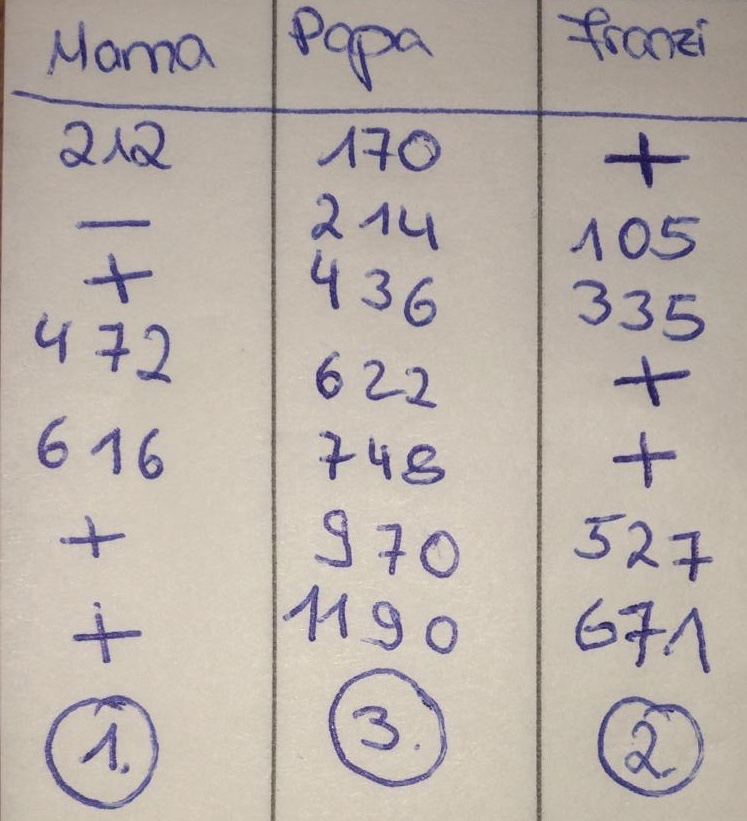 Mama Papa Franzi
212 170 +
— 214 105
+ 436 335
472 622 +
616 748 +
+ 970 527
+ 1190 671
1. 3. 2